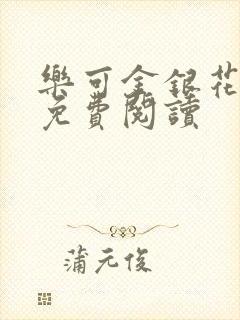 樂可金銀花
免費閱讀
蒲元俊